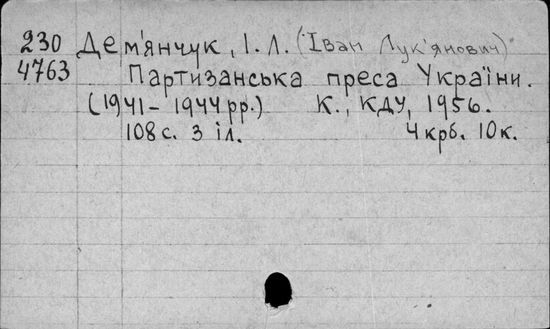 230 Дем'янчук, І. Л. (Іван Лук'янович)
4763 Партизанська преса України.
(1941-1944 рр.) К., КДУ, 1956.
108 с. з іл. 4 крб. 10 к.